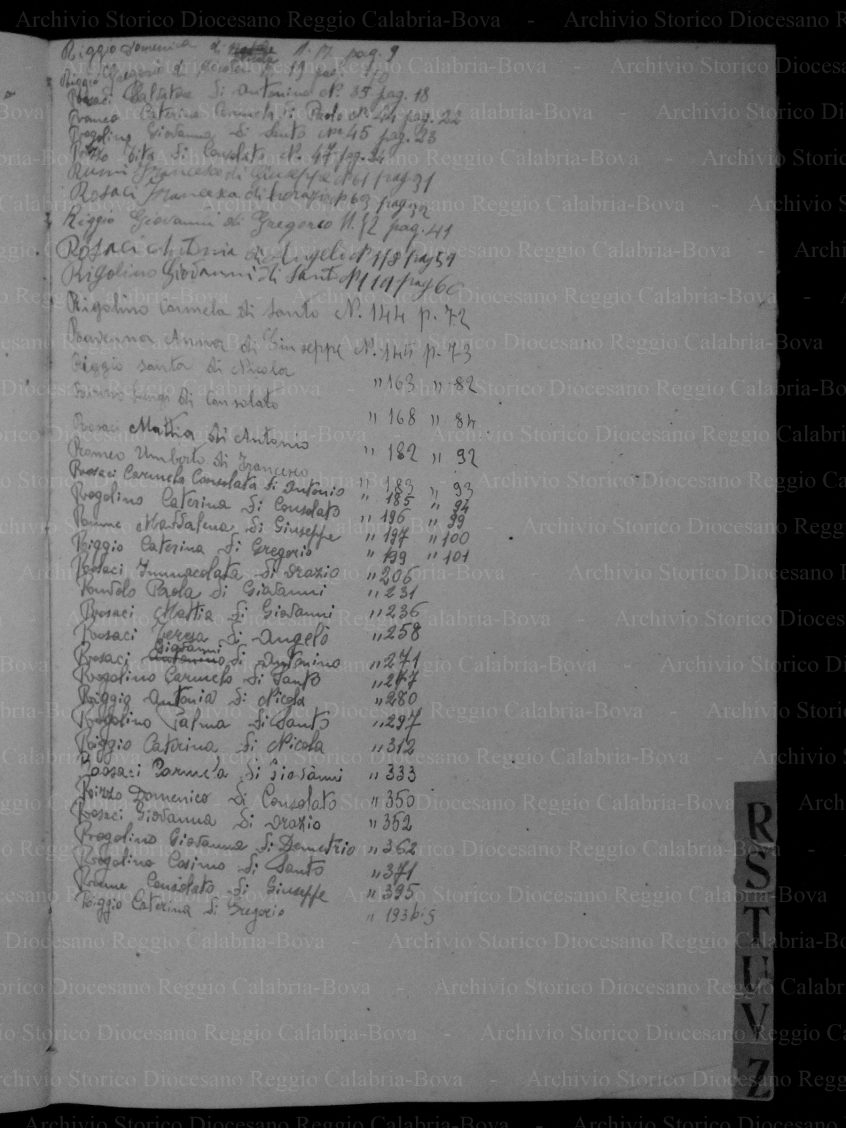 Riggio Domenica di N. 17 pag. 9
Riggio Gregorio di Nicola N. 19 pag. 10
Rosaci Salvatore di Antonino N. 35 pag. 18
Romeo Caterina Carmela di Paolo N. 44 pag. 22
Rogolino Giovanna di Santo N. 45 pag. 23
Rizzo Rita di Consolato N. 47 pag. 24
Francesco di Giuseppe N 61 pag 31
Rosaci Francesca di horazio N 63 pag 32
Riggio Giovanni di Gregorio N. 82 pag. 41
Rosaci Antonia di Angelo N 118 pag 59
Rigolino Giovanni di Santo N 119 pag 60
Rigolino Carmela di Santo N. 144 p. 72
Ravenna Anna di Giuseppe N. 145 p. 73
Riggio Santa di Nicola " 163 " 82
Luigi di Consolato " 168 " 84
Rosaci Mattia di Antonio " 182 " 92
Romeo Umberto di Francesco " 183 " 93
Rosaci Carmelo Consolata di Antonio " 185 " 94
Rogolino Caterina di Consolato " 196 " 99
Maddalena di Giuseppe " 197 " 100
Riggio Caterina di Gregorio " 199 " 101
Rosaci Immacolata di Orazio " 206
Paola di Giovanni " 231
Rosaci Mattia di Giovanni " 236
Rosaci Teresa di Angelo " 258
Giovanni
Rosaci di Antonino " 271
Rogolino Carmelo di Santo " 277
Riggio Antonia di Nicola " 280
Rogolino Palma di Santo " 297
Riggio Caterina di Nicola " 312
Rossaci Carmela di Giovanni " 333
Rizzo Domenico di Consolato " 350
Rosaci Giovanna di Orazio " 352
Rogolino Giovanna di Demetrio " 362
Rogolino Cosimo di Santo " 371
Consolato di Giuseppe " 395
Riggio Caterina di Gregorio " 193bis
R
S
T
U
V
Z
Archivio Storico Diocesano Reggio Calabria-Bova